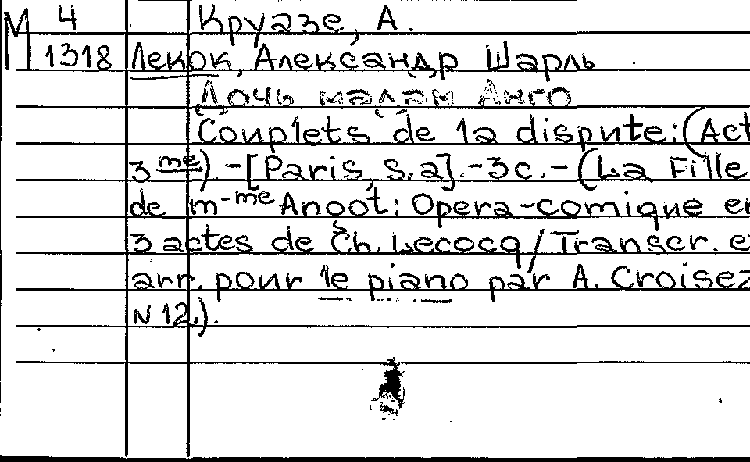 М 4 Круазе, А.
1318 Лекок, Александр Шарль
Дочь мадам Анго
Couplets de la dispute: (Act
3 me). -[Paris, s.a]. -3c. - (La Fille
de m-me Anoot: Opera-comique en
3 actes de Ch. Lecocq / Transcr. e
arr. pour le piano par A. Croisez
N 12.).